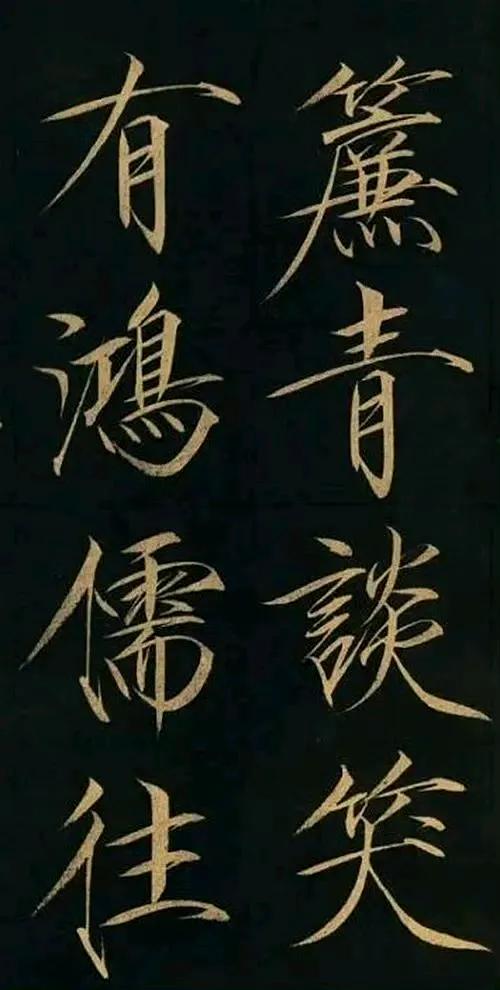 簾青談笑
有鴻儒往